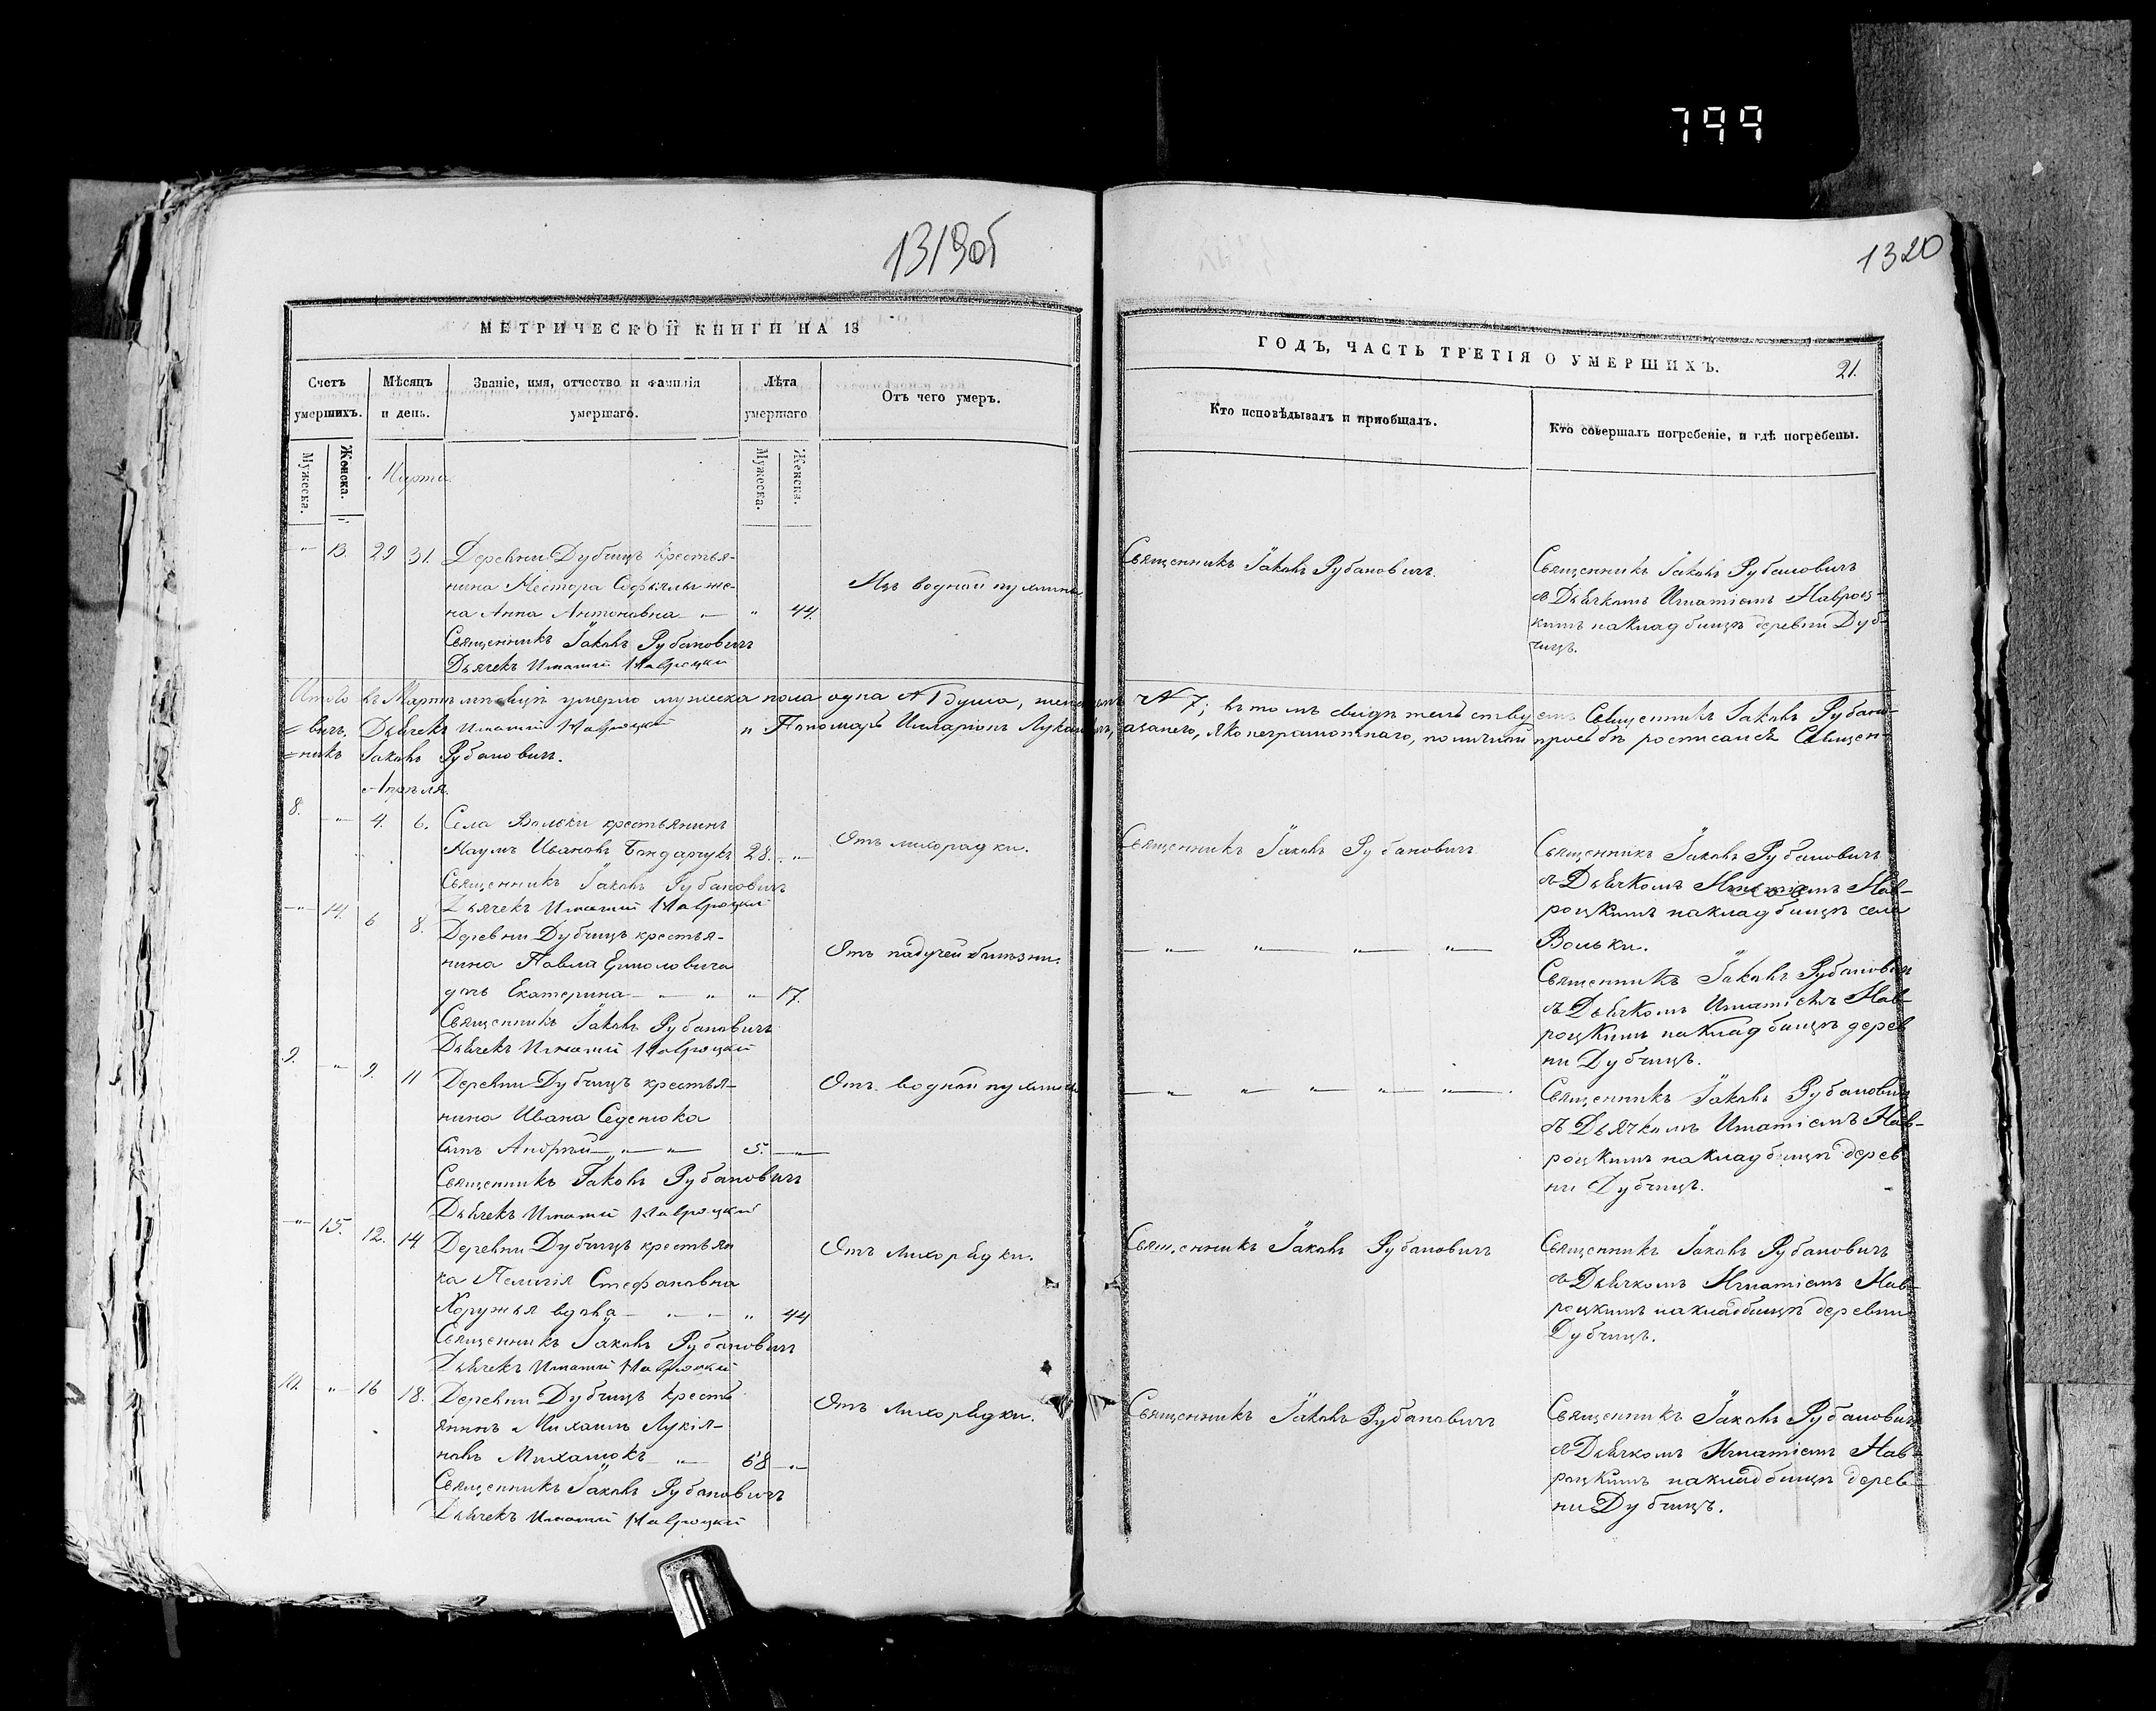 799
1319об
1320
МЕТРИЧЕСКОЙ КНИГИ НА 18
ГОДЪ, ЧАСТЬ ТРЕТІЯ О УМЕРШИХЪ.
21.
Счетъ умершихъ.
Мѣсяцъ и день.
Званіе, имя, отчество и фамилія умершаго.
Лѣта умершаго
Отъ чего умеръ.
Кто исповѣдывалъ и пріобщалъ.
Кто совершалъ погребеніе, и гдѣ погребены.
Мужеска.
Женска.
Мужеска.
Женска.
Марта.
13. 29 31. Деревни Дубчицъ крестья-
нина Нестора жe-
на Анна Антоновна 44.
Священникъ Іаковъ Рубановичъ
Дьячекъ Игнатий Навроцкий
водной пухлины
Священникъ Іаковъ Рубановичъ.
Священникъ Іаковъ Рубановичъ
съ Дьячкомъ Игнатіемъ Навроц-
кимъ на кладбищѣ деревни Дуб-
чицъ.
Итого въ Мартѣ мѣсяцѣ умерло мужеска пола одна № 1 душа, женска № 7; въ томъ свидѣтельствуемъ Священникъ Іаковъ Рубано-
=вичъ, Дьячекъ Игнатий Навроцкий " Пономарь Иларіонъ неграмотнаго, по личной прозьбѣ росписался Священ-
=никъ Іаковъ Рубановичъ.
Апрѣля.
8. 4. 6. Села Вольки крестьянинъ
Наумъ Ивановъ Бондарчукъ 28.
Священникъ Іаковъ Рубановичъ
Дьячекъ Игнатий Навроцкий
Отъ лихорадки.
Священникъ Іаковъ Рубановичъ
Священникъ Іаковъ Рубановичъ
съ Дьячкомъ Игнатіемъ Нав-
роцкимъ на кладбищѣ села
Вольки.
14. 6 8. Деревни Дубчицъ крестья-
нина Павла Ермоловича
дочь Екатерина 17.
Священникъ Іаковъ Рубановичъ
Дьячекъ Игнатий Навроцкий
Отъ падучей болѣзни.
Священникъ Іаковъ Рубановичъ
съ Дьячкомъ Игнатіемъ Нав-
роцкимъ на кладбищѣ дерев
ни Дубчицъ.
9. 9. 11 Деревни Дубчицъ крестья-
нина Ивана Седенюка
сынъ Андрѣй 5.
Священникъ Іаковъ Рубановичъ
Дьячекъ Игнатий Навроцкий
Отъ водной пухлины
Священникъ Іаковъ Рубановичъ
съ Дьячкомъ Игнатіемъ Нав-
роцкимъ на кладбищѣ дерев
ни Дубчицъ.
15. 12. 14 Деревни Дубчицъ крестьян
ка Пелагія Стефановна
Хоружья вдова 44
Священникъ Іаковъ Рубановичъ
Дьячекъ Игнатий Навроцкий
Отъ лихорадки.
Священникъ Іаковъ Рубановичъ
Священникъ Іаковъ Рубановичъ
съ Дьячкомъ Игнатіемъ Нав-
роцкимъ на кладбищѣ деревни
Дубчицъ.
10. 16 18. Деревни Дубчицъ кресть
янинъ Михаилъ Лукія-
новъ Михалюкъ 68
Священникъ Іаковъ Рубановичъ
Дьячекъ Игнатий Навроцкий
Отъ лихорадки.
Священникъ Іаковъ Рубановичъ
Священникъ Іаковъ Рубановичъ
съ Дьячкомъ Игнатіемъ Нав-
роцкимъ на кладбищѣ дерев-
ни Дубчицъ.